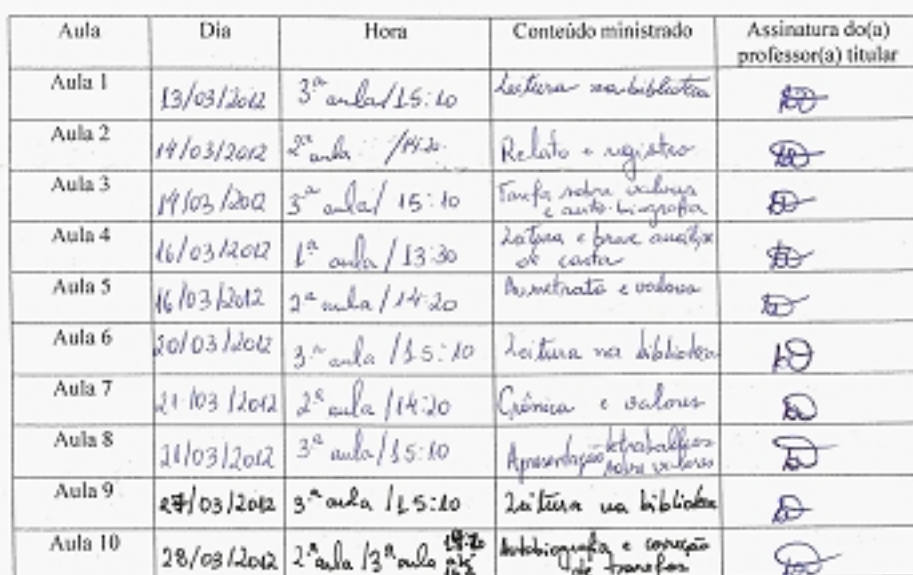 Aula Dia Hora Conteúdo ministrado Assinatura do(a)
professor(a) titular
Aula 1 13/03/2012 3ª aula/15:10 Leitura na biblioteca
Aula 2 14/03/2012 2ª aula /14:20 Relato e registro
Aula 3 14/03/2012 3ª aula/ 15:10 Tarefa sobre valores
e auto-biografia
Aula 4 16/03/2012 1ª aula/13:30 Leitura e breve análise
de carta
Aula 5 16/03/2012 2ª aula/14:20 e valores
Aula 6 20/03/2012 3ª aula/15:10 Leitura na biblioteca
Aula 7 21/03/2012 2ª aula/14:20 Crônica e valores
Aula 8 21/03/2012 3ª aula/15:10 Apresentação trabalhos
sobre valores
Aula 9 27/03/2012 3ª aula/15:10 Leitura na biblioteca
Aula 10 28/03/2012 2ª aula/3ª aula Autobiografia e correção
de tarefas